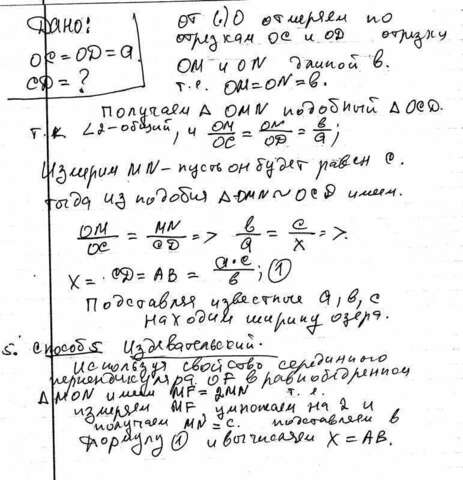 Дано:
OC = OD = a
CD = ?
от (·) O отмеряем по
отрезкам OC и OD отрезку
OM и ON длиной в.
т.е. OM = ON = в.
Получаем Δ OMN подобный Δ OCD.
т.к ∠2-общий, и OM/OC = ON/OD = в/a;
Измерим MN - пусть он будет равен c.
тогда из подобия Δ OMN ~ OCD имеем.
OM/OC = MN/CD => в/a = c/x =>.
X = CD = AB = a·c/в; ①
Подставляя известные a, в, c
находим ширину озера.
5. Способ 5 Издевательский.
Используя свойство серединного
перпендикуляра OF в равнобедренном
Δ MON имеем MF = 2MN т.е.
измеряем MF, умножаем на 2 и
получаем MN = c. подставляем в
формулу ① и вычисляем X = AB.